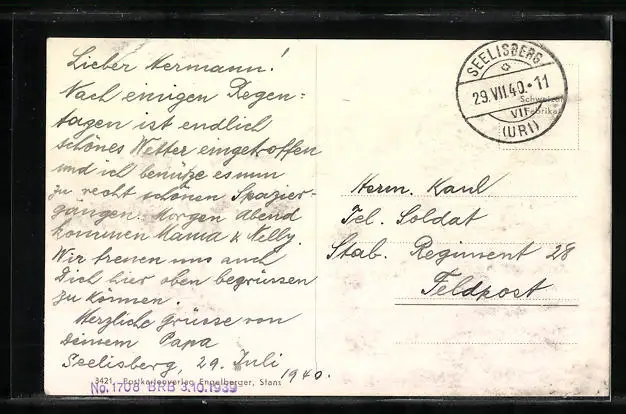 Lieber Hermann!
Nach einigen Regen=
tagen ist endlich
schönes Wetter eingetroffen
und ich benütze es nun
zu recht schönen Spazier-
gängen. Morgen Abend
kommen Mama & Nelly.
Wir freuen uns auch
Dich hier oben begrüssen
zu können.
Herzliche Grüsse von
Deinem Papa
Seelisberg, 29. Juli
1940.
3421 Postkartenverlag Engelberger, Stans
No. 1708 BRB 3.10.1939
SEELISBERG
29.VII.40.-11
VII
(URI)
Herm. Kaul
Tel. Soldat
Stab. Regiment 28
Feldpost